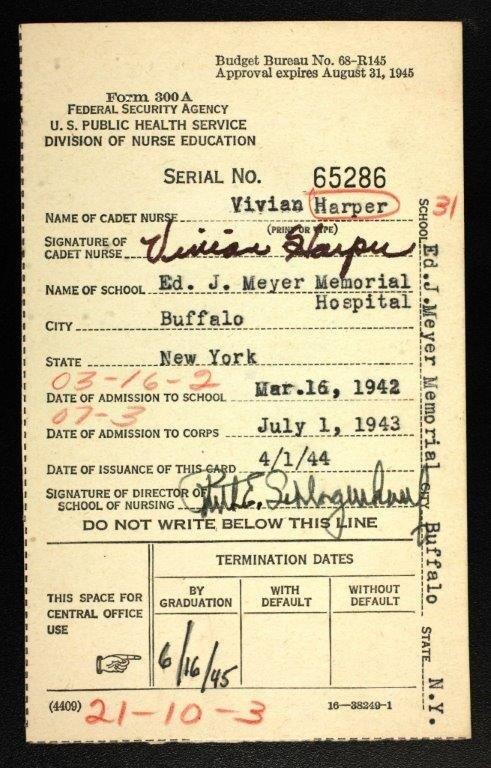 Budget Bureau No. 68-R145
Approval expires August 31, 1945
Form 300A
FEDERAL SECURITY AGENCY
U. S. PUBLIC HEALTH SERVICE
DIVISION OF NURSE EDUCATION
SERIAL NO. 65286
NAME OF CADET NURSE Vivian Harper
(PRINT OR TYPE)
SIGNATURE OF CADET NURSE Vivian Harper
NAME OF SCHOOL Ed. J. Meyer Memorial
Hospital
CITY Buffalo
STATE New York
03-16-2
DATE OF ADMISSION TO SCHOOL Mar.16, 1942
07-3
DATE OF ADMISSION TO CORPS July 1, 1943
DATE OF ISSUANCE OF THIS CARD 4/1/44
SIGNATURE OF DIRECTOR OF
SCHOOL OF NURSING Ruth E.
DO NOT WRITE BELOW THIS LINE
TERMINATION DATES
THIS SPACE FOR
CENTRAL OFFICE
USE
BY
GRADUATION
WITH
DEFAULT
WITHOUT
DEFAULT
6/16/45
(4409) 21-10-3 16—38249-1
31
SCHOOL Ed.J.Meyer Memorial CITY Buffalo STATE N.Y.